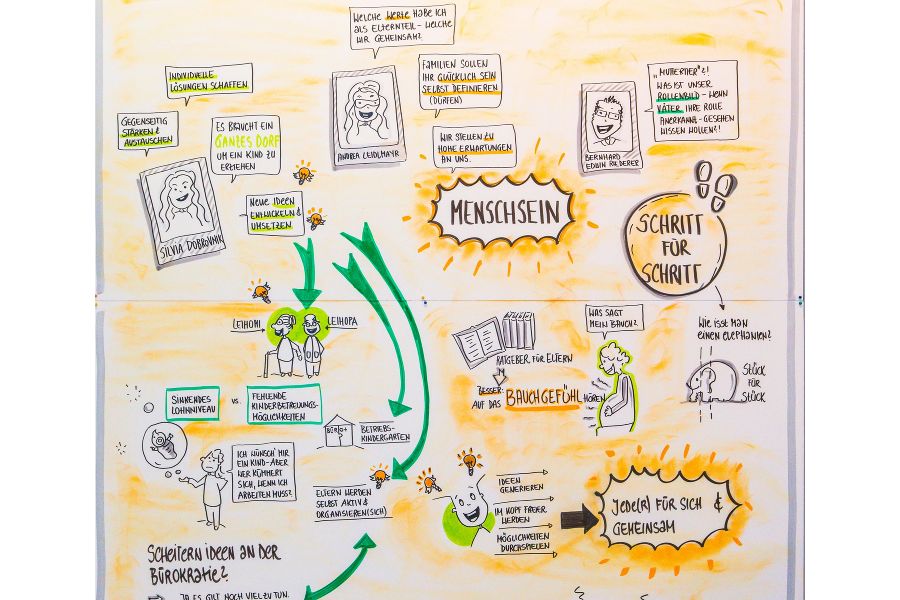 WELCHE WERTE HABE ICH
ALS ELTERNTEIL - WELCHE
WIR GEMEINSAM?
INDIVIDUELLE
LÖSUNGEN SCHAFFEN
GEGENSEITIG
STÄRKEN &
AUSTAUSCHEN
ES BRAUCHT EIN
GANZES DORF
UM EIN KIND ZU
ERZIEHEN
NEUE IDEEN
ENTWICKELN &
UMSETZEN
SILVIA DOBROVNIK
ANDREA LEIDLMAYR
FAMILIEN SOLLEN
IHR GLÜCKLICH SEIN
SELBST DEFINIEREN
(DÜRFEN)
WIR STELLEN ZU
HOHE ERWARTUNGEN
AN UNS.
MENSCHSEIN
BERNHARD
EDWIN
"MUTTERTIER"?!
WAS IST UNSER
ROLLENBILD - WENN
VÄTER IHRE ROLLE
ANERKANNT - GESEHEN
WISSEN WOLLEN?!
SCHRITT
FÜR
SCHRITT
WIE ISST MAN
EINEN ELEPHANTEN?
STÜCK
FÜR
STÜCK
LEIHOMI
LEIHOPA
RATGEBER FÜR ELTERN
BESSER:
AUF DAS BAUCHGEFÜHL HÖREN
WAS SAGT
MEIN BAUCH?
SINKENDES
LOHNNIVEAU
VS.
FEHLENDE
KINDERBETREUUNGS-
MÖGLICHKEITEN
BÜRO+
BETRIEBS-
KINDERGARTEN
ICH WÜNSCH' MIR
EIN KIND - ABER
WER KÜMMERT
SICH, WENN ICH
ARBEITEN MUSS?
ELTERN WERDEN
SELBST AKTIV &
ORGANISIEREN (SICH)
IDEEN
GENERIEREN
IM KOPF FREIER
WERDEN
MÖGLICHKEITEN
DURCHSPIELEN
JEDE(R) FÜR SICH &
GEMEINSAM
SCHEITERN IDEEN AN DER
BÜROKRATIE?
JA ES GILT NOCH VIEL ZU TUN.